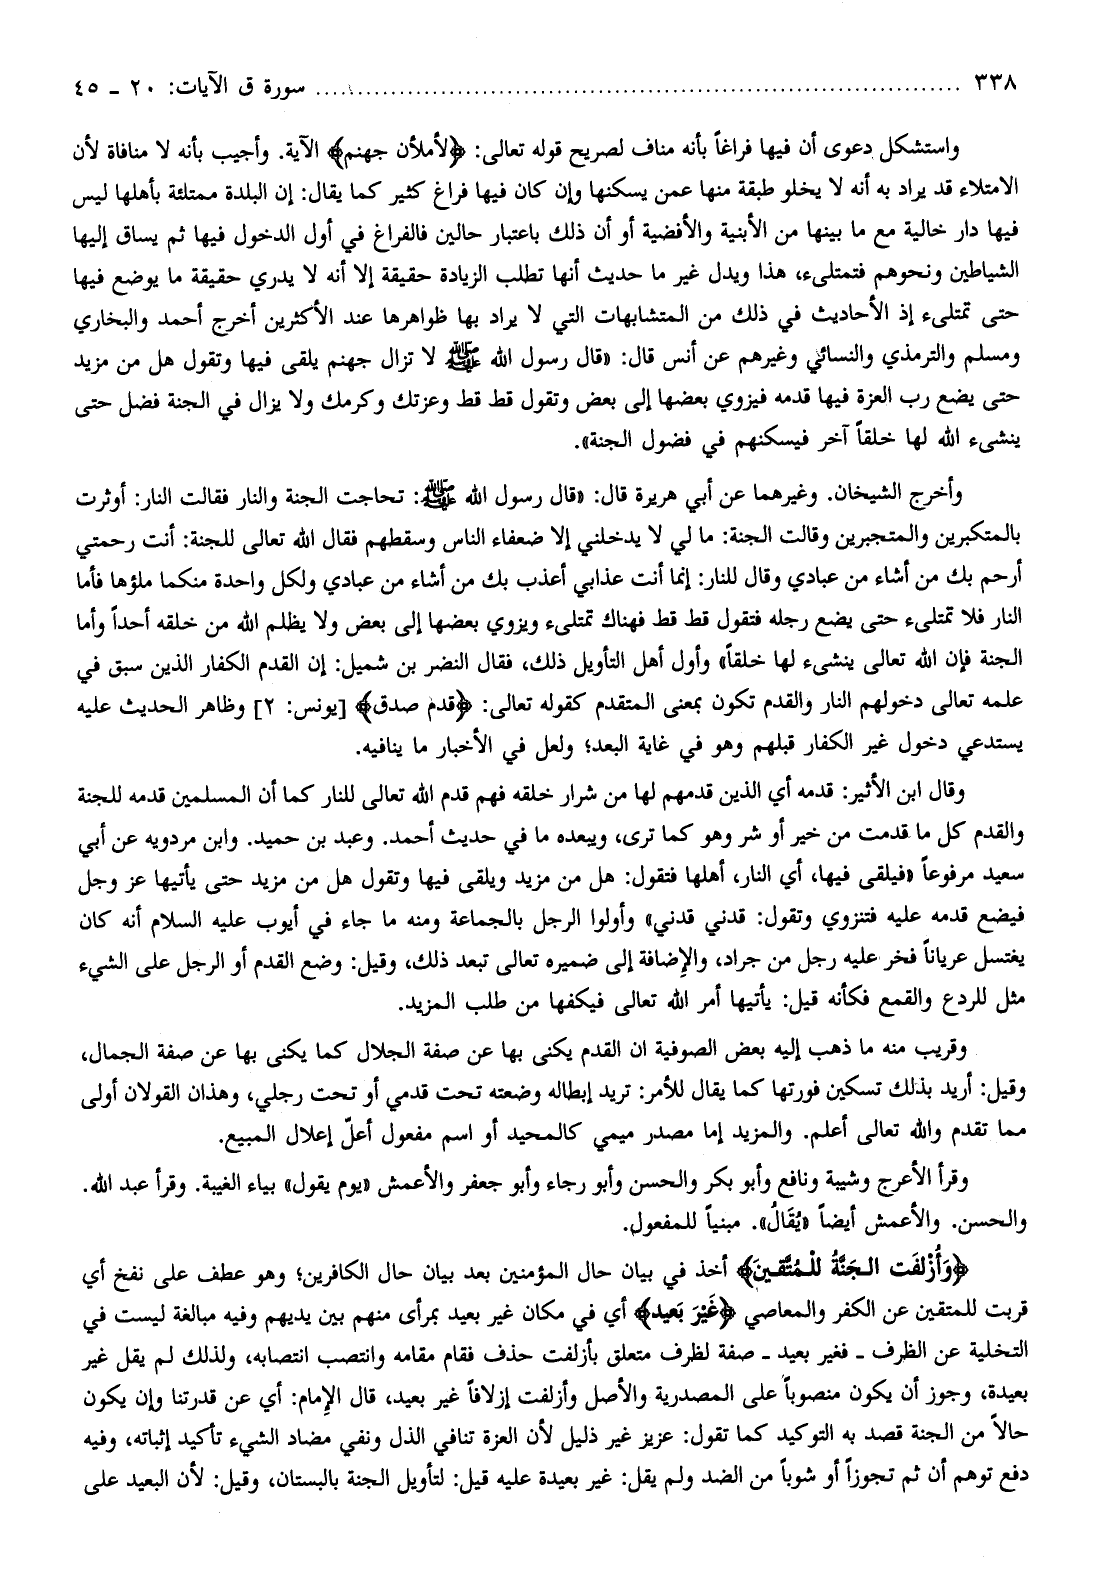 ٣٣٨ ............ سورة ق الآيات: ٢٠ ـ ٤٥
واستشكل دعوى أن فيها فراغاً بأنه مناف لصريح قوله تعالى: ﴿لأملأن جهنم﴾ الآية. وأجيب بأنه لا منافاة لأن
الامتلاء قد يراد به أنه لا يخلو طبقة منها عمن يسكنها وإن كان فيها فراغ كثير كما يقال: إن البلدة ممتلئة بأهلها ليس
فيها دار خالية مع ما بينها من الأبنية والأفضية أو أن ذلك باعتبار حالين فالفراغ في أول الدخول فيها ثم يساق إليها
الشياطين ونحوهم فتمتلىء، هذا ويدل غير ما حديث أنها تطلب الزيادة حقيقة إلا أنه لا يدري حقيقة ما يوضع فيها
حتى تمتلىء إذ الأحاديث في ذلك من المتشابهات التي لا يراد بها ظواهرها عند الأكثرين أخرج أحمد والبخاري
ومسلم والترمذي والنسائي وغيرهم عن أنس قال: «قال رسول الله ﷺ لا تزال جهنم يلقى فيها وتقول هل من مزيد
حتى يضع رب العزة فيها قدمه فيزوي بعضها إلى بعض وتقول قط قط وعزتك وكرمك ولا يزال في الجنة فضل حتى
ينشىء الله لها خلقاً آخر فيسكنهم في فضول الجنة».
وأخرج الشيخان. وغيرهما عن أبي هريرة قال: «قال رسول الله ﷺ: تحاجت الجنة والنار فقالت النار: أوثرت
بالمتكبرين والمتجبرين وقالت الجنة: ما لي لا يدخلني إلا ضعفاء الناس وسقطهم فقال الله تعالى للجنة: أنت رحمتي
أرحم بك من أشاء من عبادي وقال للنار: إنما أنت عذابي أعذب بك من أشاء من عبادي ولكل واحدة منكما ملؤها فأما
النار فلا تمتلىء حتى يضع رجله فتقول قط قط فهناك تمتلىء ويزوي بعضها إلى بعض ولا يظلم الله من خلقه أحداً وأما
الجنة فإن الله تعالى ينشىء لها خلقاً» وأول أهل التأويل ذلك، فقال النضر بن شميل: إن القدم الكفار الذين سبق في
علمه تعالى دخولهم النار والقدم تكون بمعنى المتقدم كقوله تعالى: ﴿قدم صدق﴾ [يونس: ٢] وظاهر الحديث عليه
يستدعي دخول غير الكفار قبلهم وهو في غاية البعد؛ ولعل في الأخبار ما ينافيه.
وقال ابن الأثير: قدمه أي الذين قدمهم لها من شرار خلقه فهم قدم الله تعالى للنار كما أن المسلمين قدمه للجنة
والقدم كل ما قدمت من خير أو شر وهو كما ترى، ويبعده ما في حديث أحمد. وعبد بن حميد. وابن مردويه عن أبي
سعيد مرفوعاً «فيلقى فيها، أي النار، أهلها فتقول: هل من مزيد ويلقى فيها وتقول هل من مزيد حتى يأتيها عز وجل
فيضع قدمه عليه فتنزوي وتقول: قدني قدني» وأولوا الرجل بالجماعة ومنه ما جاء في أيوب عليه السلام أنه كان
يغتسل عرياناً فخر عليه رجل من جراد، والإضافة إلى ضميره تعالى تبعد ذلك، وقيل: وضع القدم أو الرجل على الشيء
مثل للردع والقمع فكأنه قيل: يأتيها أمر الله تعالى فيكفها من طلب المزيد.
وقريب منه ما ذهب إليه بعض الصوفية ان القدم يكنى بها عن صفة الجلال كما يكنى بها عن صفة الجمال،
وقيل: أريد بذلك تسكين فورتها كما يقال للأمر: تريد إبطاله وضعته تحت قدمي أو تحت رجلي، وهذان القولان أولى
مما تقدم والله تعالى أعلم. والمزيد إما مصدر ميمي كالمحيد أو اسم مفعول أعلّ إعلال المبيع.
وقرأ الأعرج وشيبة ونافع وأبو بكر والحسن وأبو رجاء وأبو جعفر والأعمش «يوم يقول» بياء الغيبة. وقرأ عبد الله.
والحسن. والأعمش أيضاً «يُقَالُ». مبنياً للمفعول.
﴿وَأُزْلفَت الـجَنَّةُ للْمُتَّقينَ﴾ أخذ في بيان حال المؤمنين بعد بيان حال الكافرين؛ وهو عطف على نفخ أي
قربت للمتقين عن الكفر والمعاصي ﴿غَيْرَ بَعيد﴾ أي في مكان غير بعيد بمرأى منهم بين يديهم وفيه مبالغة ليست في
التخلية عن الظرف ـ فغير بعيد ـ صفة لظرف متعلق بأزلفت حذف فقام مقامه وانتصب انتصابه، ولذلك لم يقل غير
بعيدة، وجوز أن يكون منصوباً على المصدرية والأصل وأزلفت إزلافاً غير بعيد، قال الإمام: أي عن قدرتنا وإن يكون
حالاً من الجنة قصد به التوكيد كما تقول: عزيز غير ذليل لأن العزة تنافي الذل ونفي مضاد الشيء تأكيد إثباته، وفيه
دفع توهم أن ثم تجوزاً أو شوباً من الضد ولم يقل: غير بعيدة عليه قيل: لتأويل الجنة بالبستان، وقيل: لأن البعيد على